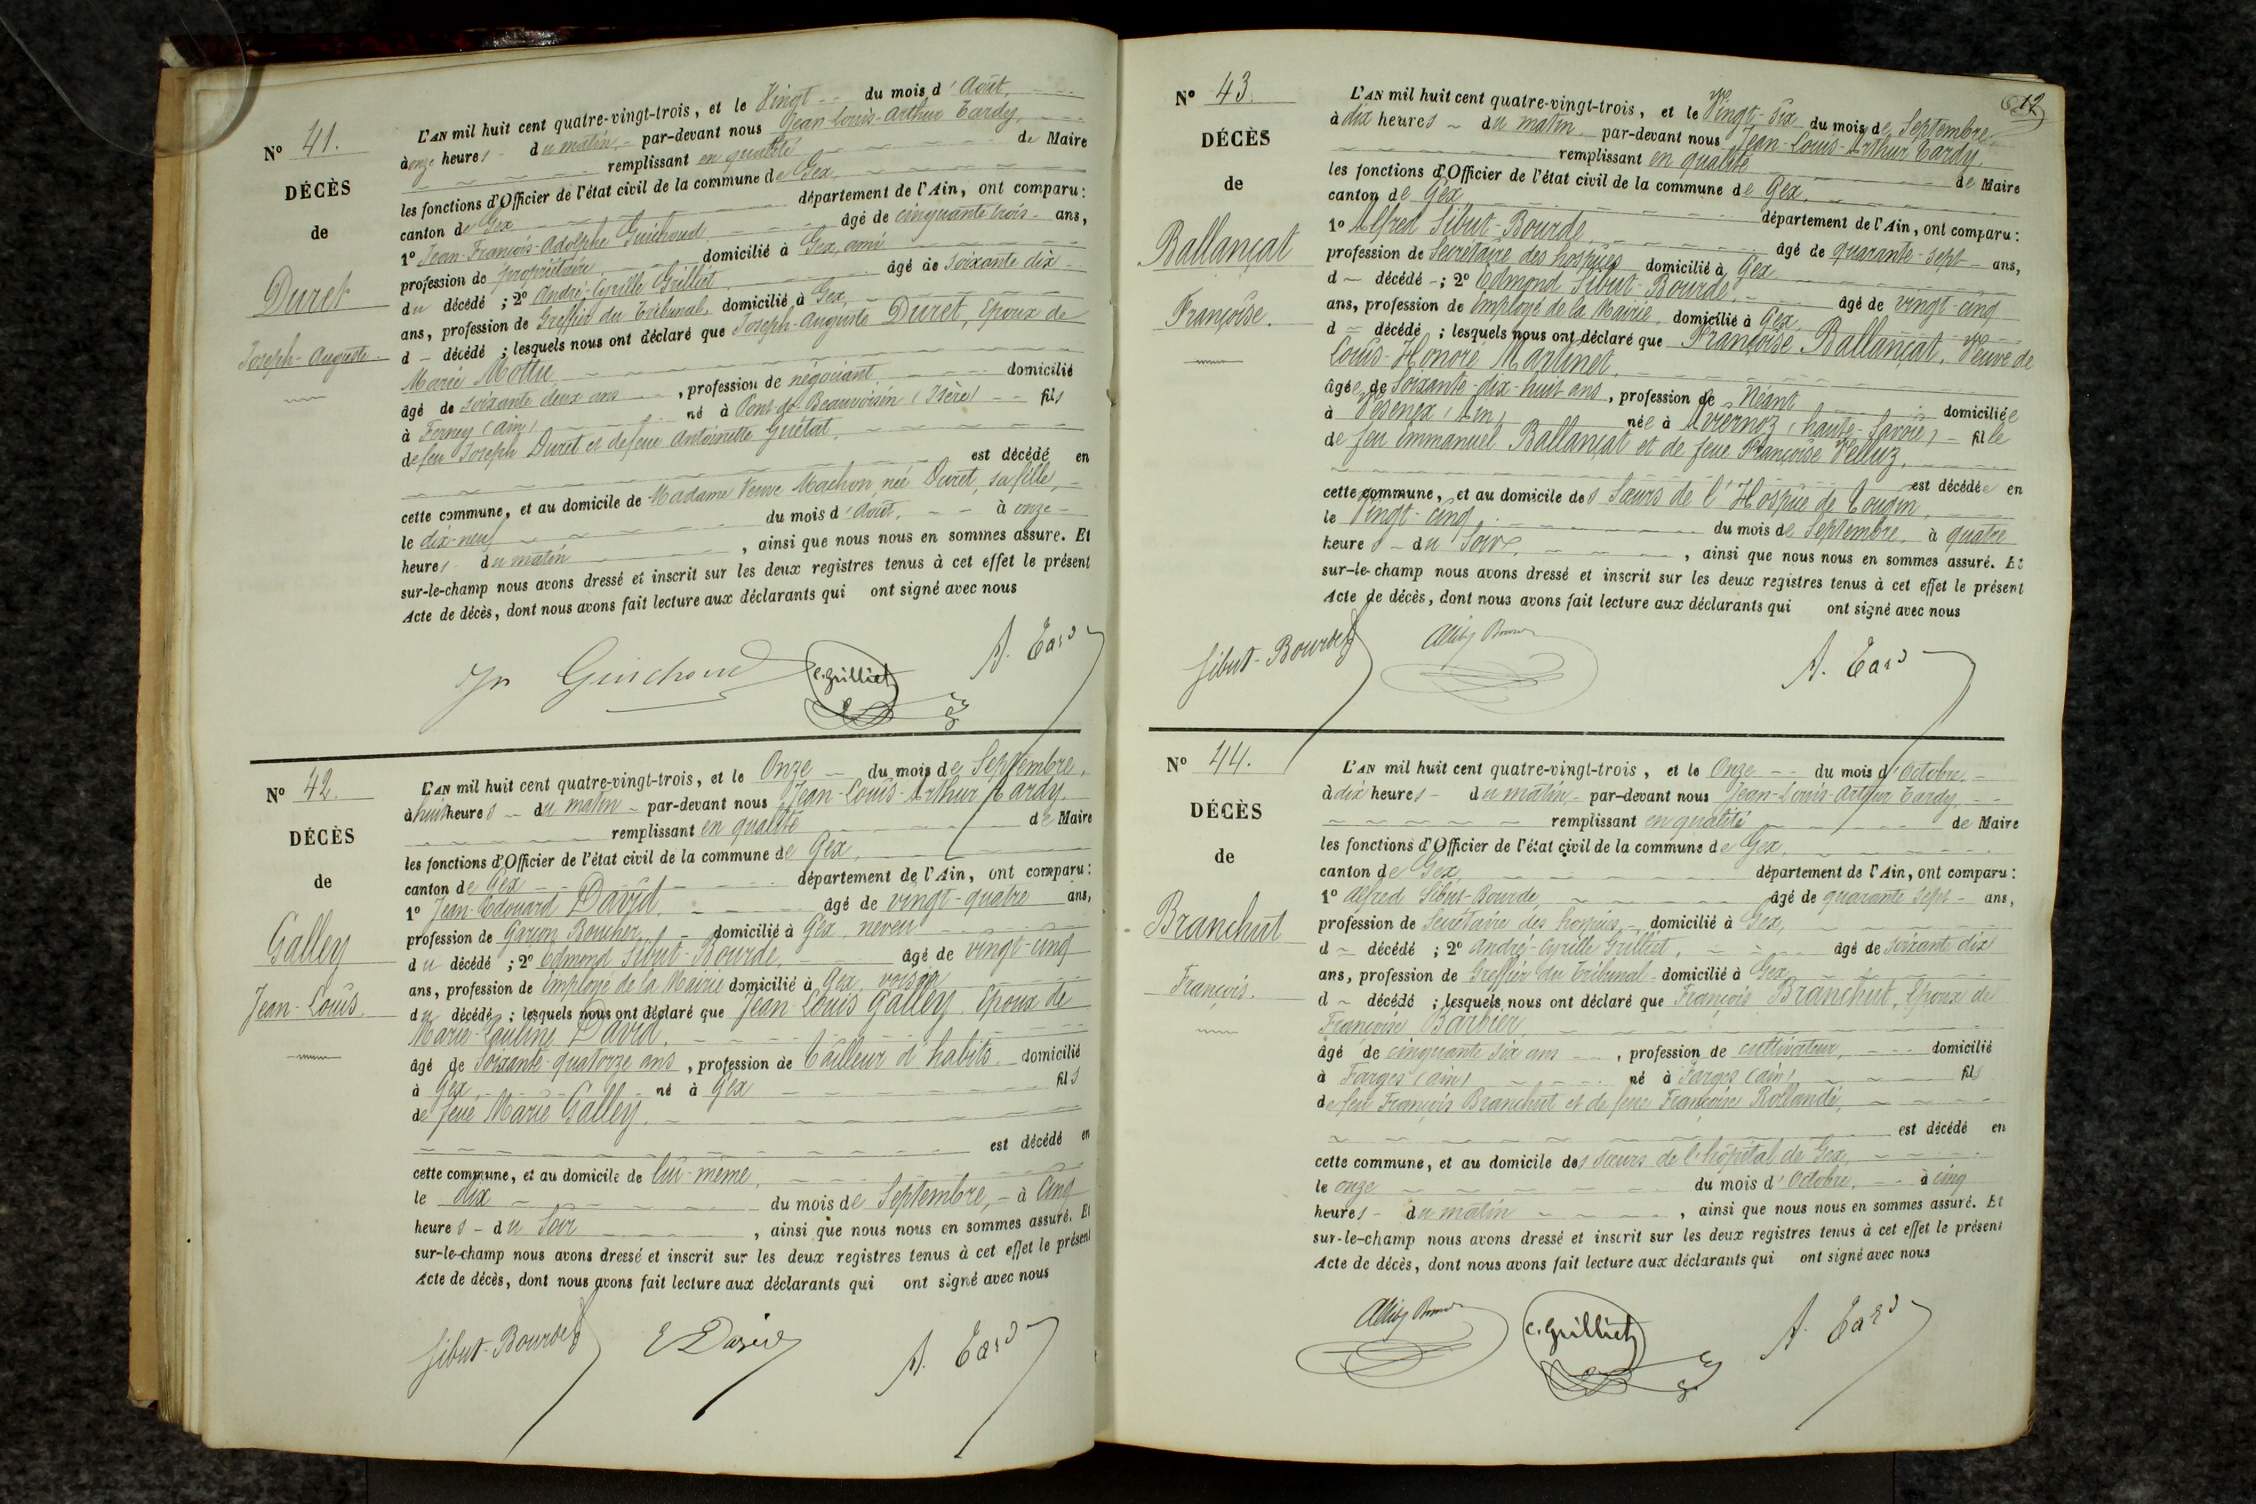 Nº 41.
DÉCÈS
de
Duret
Joseph-Auguste
L'AN mil huit cent quatre-vingt-trois, et le Vingt du mois d'Août,
à onze heures du matin, par-devant nous Jean-Louis-Arthur Tardy,
remplissant en qualité de Maire
les fonctions d'Officier de l'état civil de la commune de Gex,
canton de Gex département de l'Ain, ont comparu:
1º Jean-François-Adolphe Guichoud âgé de cinquante trois ans,
profession de propriétaire domicilié à Gex, ami
du décédé ; 2º André-Cyrille Grilliet âgé de soixante dix
ans, profession de Greffier du Tribunal, domicilié à Gex,
d décédé ; lesquels nous ont déclaré que Joseph-Auguste Duret, Epoux de
Marie Mottu
âgé de soixante deux ans, profession de négociant, domicilié
à Ferney (Ain) né à Pont-de-Beauvoisin (Isère) fils
de feu Joseph Duret et de feue Antoinette Guétat,
est décédé en
cette commune, et au domicile de Madame Veuve Machon, née Duret, sa fille,
le dix-neuf du mois d'Août, à onze
heures du matin, ainsi que nous nous en sommes assuré. Et
sur-le-champ nous avons dressé et inscrit sur les deux registres tenus à cet effet le présent
Acte de décès, dont nous avons fait lecture aux déclarants qui ont signé avec nous
Guichoud C. Grilliet A. Tardy
Nº 42.
DÉCÈS
de
Galley
Jean-Louis.
L'AN mil huit cent quatre-vingt-trois, et le Onze du mois de Septembre,
à huit heures du matin par-devant nous Jean-Louis-Arthur Tardy,
remplissant en qualité de Maire
les fonctions d'Officier de l'état civil de la commune de Gex,
canton de Gex département de l'Ain, ont comparu:
1º Jean-Edouard David, âgé de vingt-quatre ans,
profession de Garçon Boucher domicilié à Gex, neveu
du décédé ; 2º Edmond Sibut-Bourde, âgé de vingt-cinq
ans, profession de Employé de la Mairie domicilié à Gex, voisin
du décédé ; lesquels nous ont déclaré que Jean-Louis Galley, Epoux de
Marie-Pauline David,
âgé de Soixante-quatorze ans, profession de Tailleur d'habits domicilié
à Gex né à Gex fils
de feue Marie Galley,
est décédé en
cette commune, et au domicile de lui-même,
le dix du mois de Septembre, à Cinq
heures du Soir, ainsi que nous nous en sommes assuré. Et
sur-le-champ nous avons dressé et inscrit sur les deux registres tenus à cet effet le présent
Acte de décès, dont nous avons fait lecture aux déclarants qui ont signé avec nous
Sibut-Bourde E David A. Tardy
12
Nº 43.
DÉCÈS
de
Ballançat
Françoise.
L'AN mil huit cent quatre-vingt-trois, et le Vingt-six du mois de Septembre,
à dix heures du matin par-devant nous Jean-Louis-Arthur Tardy,
remplissant en qualité de Maire
les fonctions d'Officier de l'état civil de la commune de Gex,
canton de Gex département de l'Ain, ont comparu:
1º Alfred Sibut-Bourde, âgé de quarante-sept ans,
profession de Secrétaire des hospices domicilié à Gex
d décédé ; 2º Edmond Sibut-Bourde, âgé de vingt-cinq
ans, profession de Employé de la Mairie, domicilié à Gex,
d décédé ; lesquels nous ont déclaré que Françoise Ballançat, Veuve de
Louis-Honoré Martinet,
âgée de Soixante-dix-huit ans, profession de Néant domiciliée
à Vesenex (Ain) née à Aviernoz (haute-Savoie) fille
de feu Emmanuel Ballançat et de feue Françoise Velluz,
est décédée en
cette commune, et au domicile des Sœurs de l'Hospice de Tougin,
le Vingt-cinq du mois de Septembre, à quatre
heures du Soir, ainsi que nous nous en sommes assuré. Et
sur-le-champ nous avons dressé et inscrit sur les deux registres tenus à cet effet le présent
Acte de décès, dont nous avons fait lecture aux déclarants qui ont signé avec nous
Sibut-Bourde A. Tardy
Nº 44.
DÉCÈS
de
Branchut
François.
L'AN mil huit cent quatre-vingt-trois, et le Onze du mois d'Octobre,
à dix heures du matin, par-devant nous Jean-Louis-Arthur Tardy,
remplissant en qualité de Maire
les fonctions d'Officier de l'état civil de la commune de Gex,
canton de Gex, département de l'Ain, ont comparu:
1º Alfred Sibut-Bourde, âgé de quarante sept ans,
profession de Secrétaire des hospices, domicilié à Gex,
d décédé ; 2º André-Cyrille Grilliet, âgé de soixante dix
ans, profession de Greffier du Tribunal domicilié à Gex
d décédé ; lesquels nous ont déclaré que François Branchut, Epoux de
Françoise Barbier,
âgé de cinquante six ans, profession de cultivateur, domicilié
à Farges (Ain) né à Farges (Ain) fils
de feu François Branchut et de feue Françoise Rollandi,
est décédé en
cette commune, et au domicile des sœurs de l'hôpital de Gex,
le onze du mois d'Octobre, à cinq
heures du matin, ainsi que nous nous en sommes assuré. Et
sur-le-champ nous avons dressé et inscrit sur les deux registres tenus à cet effet le présent
Acte de décès, dont nous avons fait lecture aux déclarants qui ont signé avec nous
C. Grilliet A. Tardy